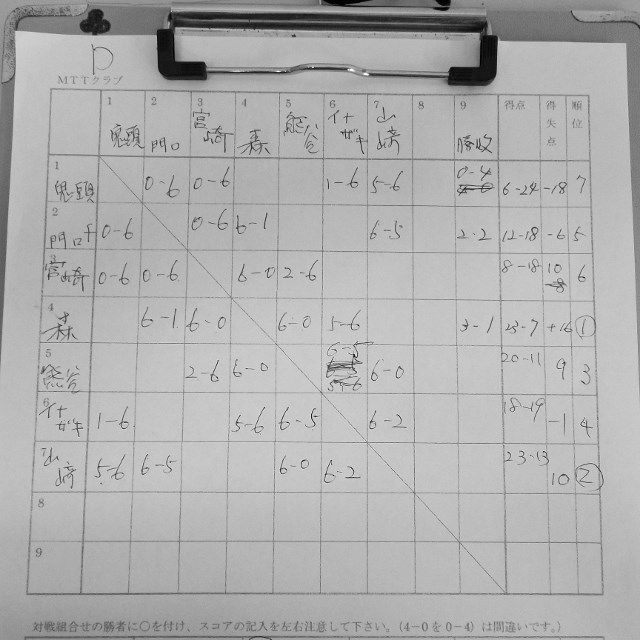 D
MTTクラブ
1 2 3 4 5 6 7 8 9 得点 得失点 順位
鬼頭 門口 宮崎 森 熊谷 イナザキ 山崎 勝敗
1 鬼頭 0-6 0-6 1-6 5-6 0-4 6-24 -18 7
2 門口 0-6 0-6 6-1 6-5 2-2 12-18 -6 5
3 宮崎 0-6 0-6 6-0 2-6 8-18 10 6
4 森 6-1 6-0 6-0 5-6 3-1 23-7 +16 ①
5 熊谷 2-6 6-0 6-0 20-11 9 3
6 イナザキ 1-6 5-6 6-5 6-2 18-19 -1 4
7 山崎 5-6 6-5 6-0 6-2 23-13 10 ②
8
9
対戦組合せの勝者に○を付け、スコアの記入を左右注意して下さい。(4-0を0-4)は間違いです。)